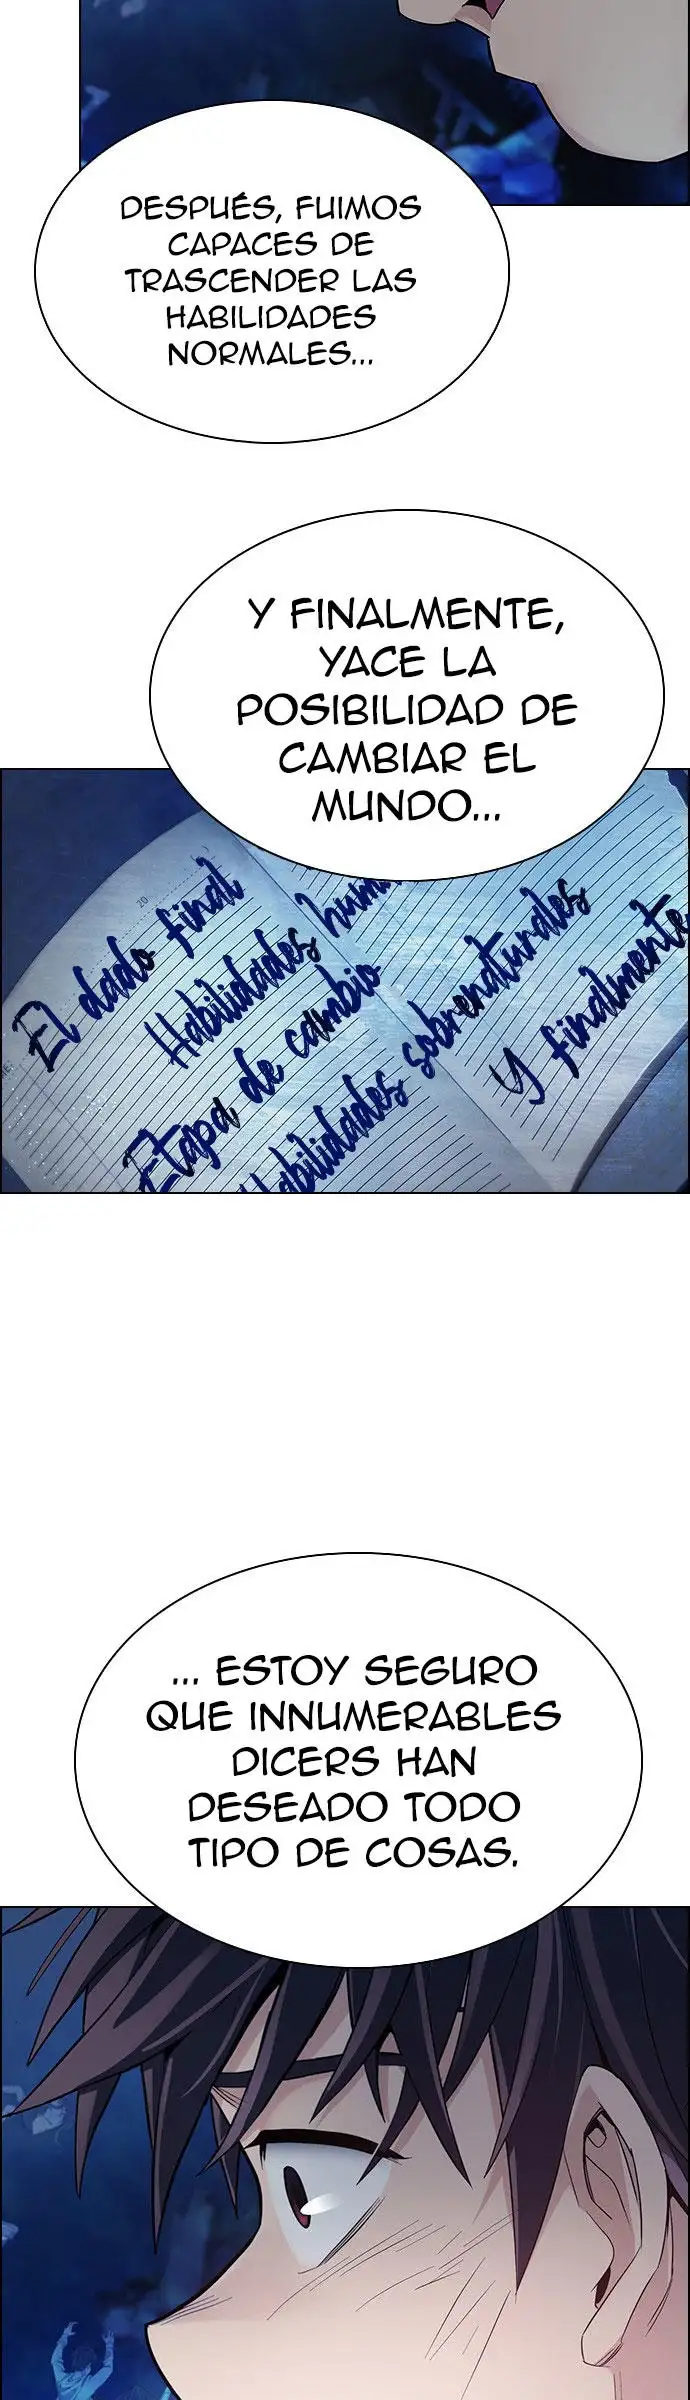 DESPUÉS, FUIMOS
CAPACES DE
TRASCENDER LAS
HABILIDADES
NORMALES...
Y FINALMENTE,
YACE LA
POSIBILIDAD DE
CAMBIAR EL
MUNDO...
20
El dado final
Habilidades hum
Etapa de cambio
Habilidades sobrenaturales
Y finalmente
... ESTOY SEGURO
QUE INNUMERABLES
DICERS HAN
DESEADO TODO
TIPO DE COSAS.